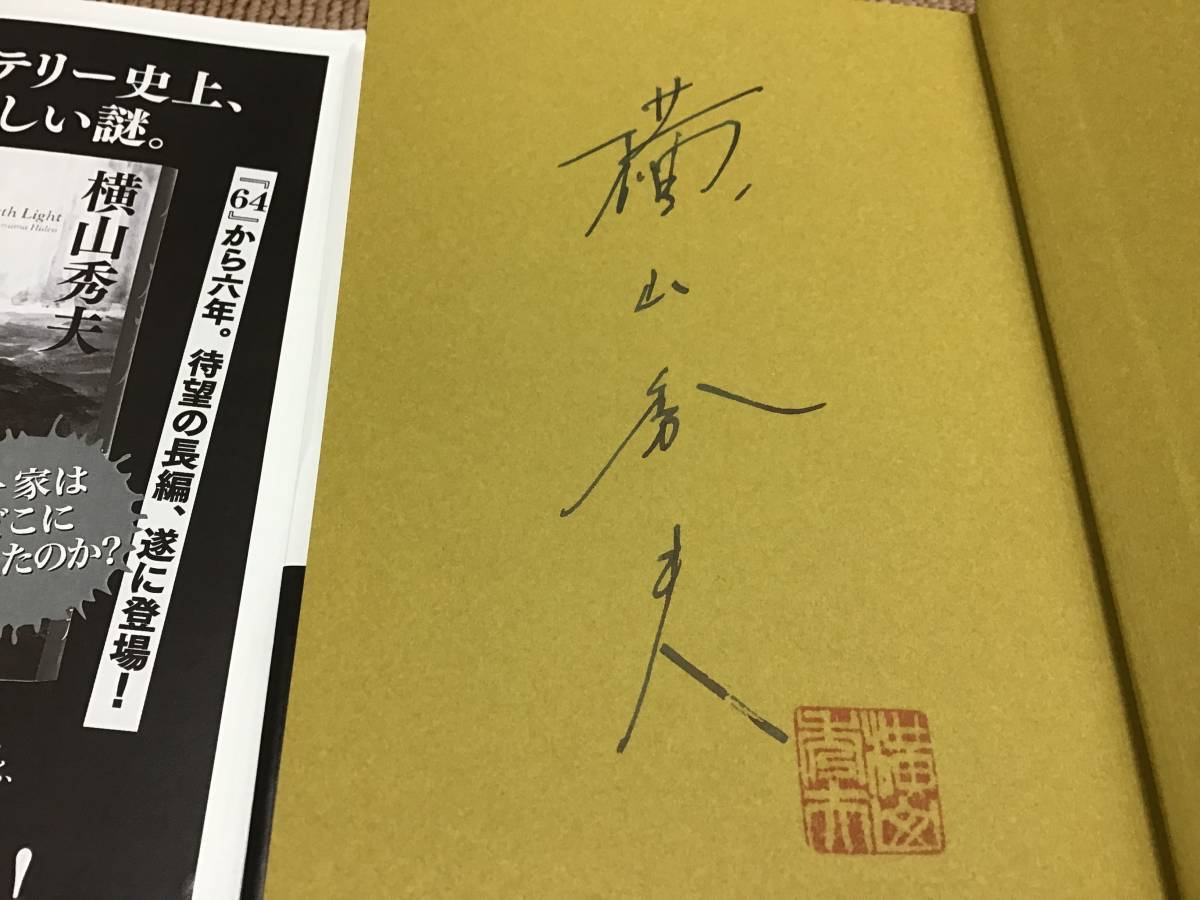 テリー史上、
しい謎。
横山秀夫
th Light
ama Hideo
『64』から六年。待望の長編、遂に登場!
家は
どこに
たのか?
!
横山秀夫
横山
秀夫